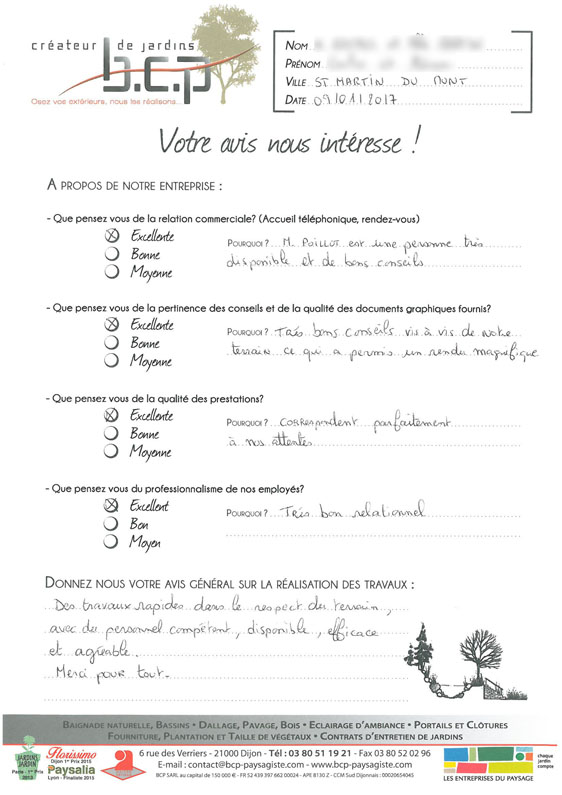 créateur de jardins
b.c.p
Osez vos extérieurs, nous les réalisons...
NOM
PRÉNOM
VILLE ST MARTIN DU MONT
DATE 09/01/2017
Votre avis nous intéresse !
A PROPOS DE NOTRE ENTREPRISE :
- Que pensez vous de la relation commerciale? (Accueil téléphonique, rendez-vous)
Excellente
Bonne
Moyenne
POURQUOI ? M. POILLOT est une personne très
disponible et de bons conseils
- Que pensez vous de la pertinence des conseils et de la qualité des documents graphiques fournis?
Excellente
Bonne
Moyenne
POURQUOI ? Très bons conseils vis à vis de notre
terrain ce qui a permis un rendu magnifique
- Que pensez vous de la qualité des prestations?
Excellente
Bonne
Moyenne
POURQUOI ? correspondent parfaitement
à nos attentes
- Que pensez vous du professionnalisme de nos employés?
Excellent
Bon
Moyen
POURQUOI ? Très bon relationnel
DONNEZ NOUS VOTRE AVIS GÉNÉRAL SUR LA RÉALISATION DES TRAVAUX :
Des travaux rapides dans le respect du terrain,
avec du personnel compétent, disponible, efficace
et agréable.
Merci pour tout.
BAIGNADE NATURELLE, BASSINS • DALLAGE, PAVAGE, BOIS • ECLAIRAGE D'AMBIANCE • PORTAILS ET CLÔTURES
FOURNITURE, PLANTATION ET TAILLE DE VÉGÉTAUX • CONTRATS D'ENTRETIEN DE JARDINS
JARDINS JARDIN
Paris - 1er Prix
2013
Florissimo
Dijon 1er Prix 2015
Paysalia
Lyon - Finaliste 2015
6 rue des Verriers - 21000 Dijon - Tél : 03 80 51 19 21 - Fax 03 80 52 02 96
E-mail : contact@bcp-paysagiste.com - www.bcp-paysagiste.com
BCP SARL au capital de 150 000 € - FR 52 439 397 662 00024 - APE 8130 Z - CCM Sud Dijonnais : 00020654045
LES ENTREPRISES DU PAYSAGE
chaque
jardin
compte